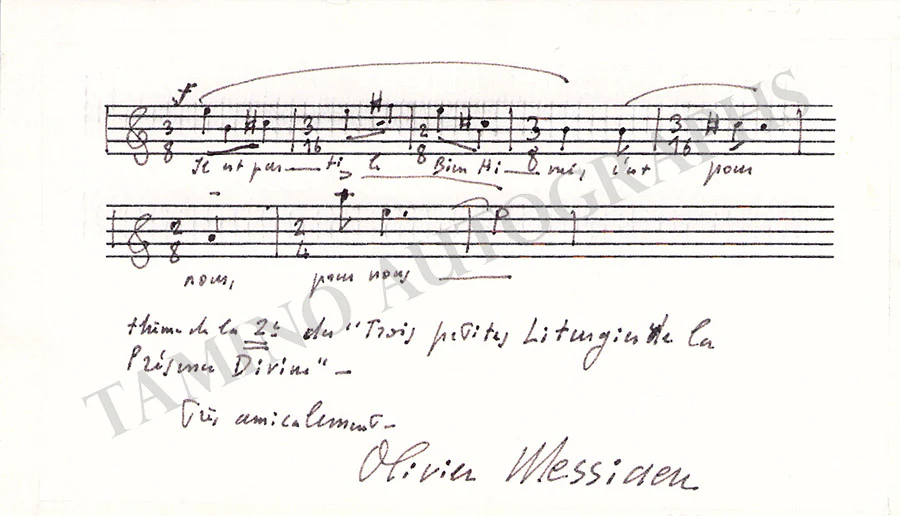 f
3 8 3 16 2 8 3 8 3 16
Il est par—ti le Bien Ai—mé, c'est pour
2 8 2 4
nous, pour nous —
thème de la 2e des "Trois petites Liturgies de la
Présence Divine" —
Très amicalement —
Olivier Messiaen
TAMINO AUTOGRAPHS